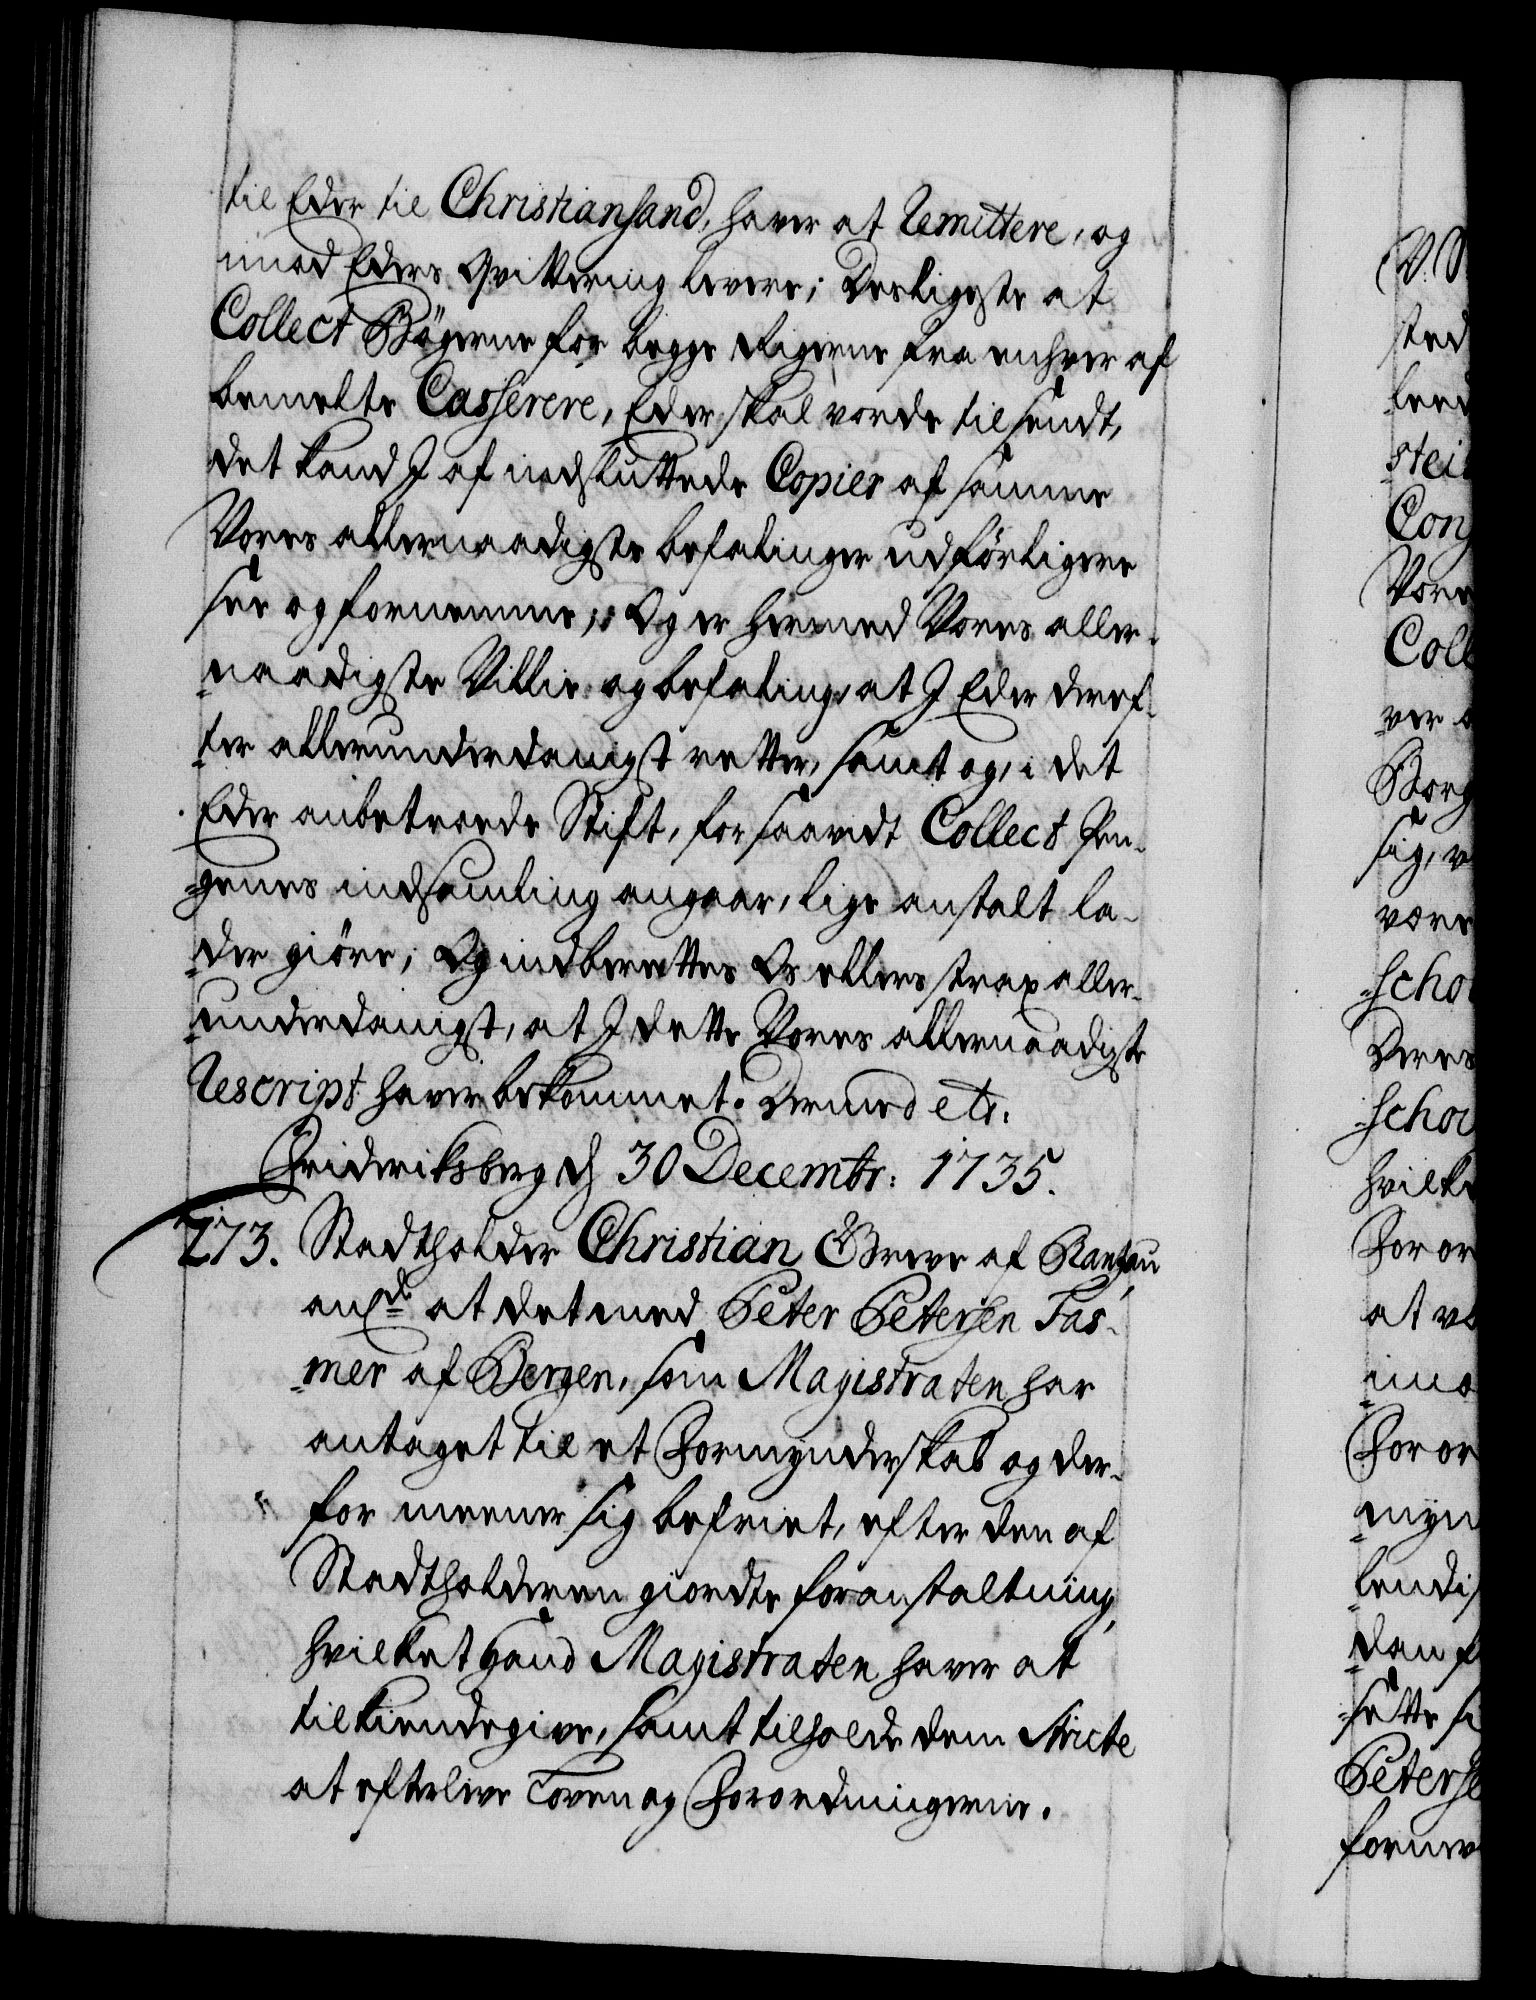 til Eder til Christiansand, haver at Remittere, og
imod Eders Qvittering levere; Desligeste at
Collect Bögerne for begge Rigerne fra enhver af
bemelte Casserere, Eder skal vorde tilsendt,
det kand J af indsluttede Copier af samme
Vores allernaadigste befalinger udförligere
see og fornemme; Og er hermed Vores aller-
naadigste Villie og befaling, at J Eder deref-
ter allerunderdanigst retter, samt og, i det
Eder anbetroede Stift, for saavidt Collect Pen-
genes indsamling angaar, lige anstalt la-
der giöre; Og indberettes Os ellers strax aller-
underdanigst, at J dette Vores allernaadigste
Rescript haver bekommet. Dermed etc:
Frideriksberg d 30 Decembr: 1735.
273. Stadtholder Christian Greve af Rantzau
anl: at det med Peter Petersen Fas-
mer af Bergen, som Magistraten har
antaget til et Formynderskab og der-
for meener sig befriet, efter den af
Stadtholderen giordte foranstaltning,
hvilket hand Magistraten haver at
tilkiendegive, samt tilholde dem Stricte
at efterleve Loven og Forordningerne.
V. S
sted
leed
stei
Con
Vore
Coll
ver
Borg
sig, v
være
scho
Deres
schou
hvilke
For or
at vo
imo
For or
myn
lendi
den f
sette s
Peterse
forme